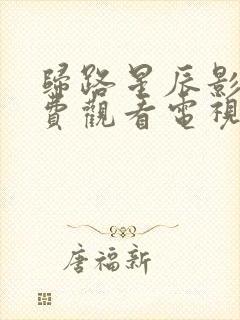 歸路星辰影
費觀看電視
唐福新